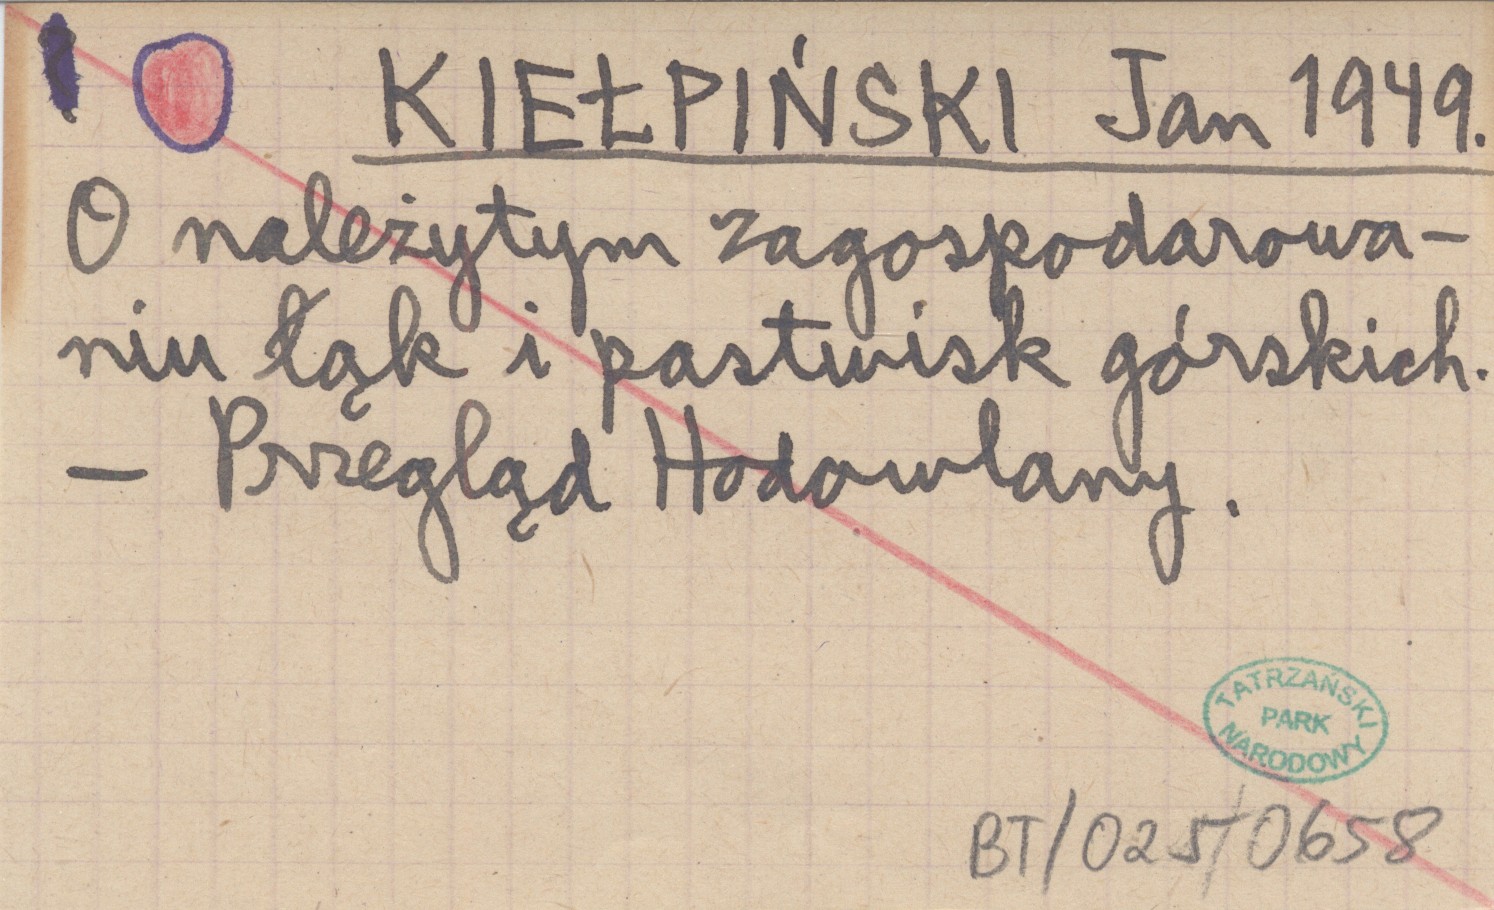 KIEŁPIŃSKI Jan 1949.
O należytym zagospodarowa-
niu łąk i pastwisk górskich.
— Przegląd Hodowlany.
TATRZAŃSKI
PARK
NARODOWY
BT/025/0658